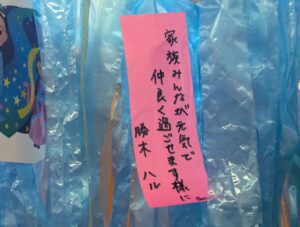 家族みんなが元気で
仲良く過ごせます様に。
勝木 ハル